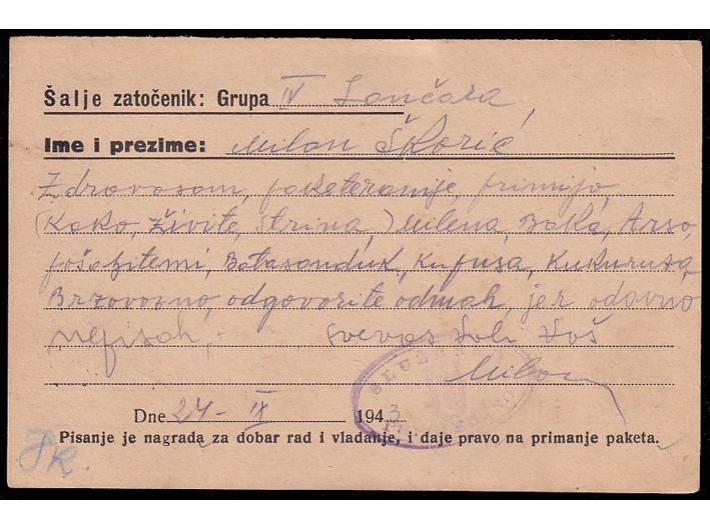 Šalje zatočenik: Grupa IV Lončara,
Ime i prezime: Milan Škorić
Zdravosam, paketeranije, primijo,
(Kako, živite, strina,) Milena, Baka, Arso,
pošaljitemi, Batasanduk, Kufusa, Kukurusa,
Brzovozno, odgovorite odmah, jer odavno
nepisah,- Svevas voli Vaš
Milan
SLUŽB
Dne 24 - IX 1943
Pisanje je nagrada za dobar rad i vladanje, i daje pravo na primanje paketa.
Pk.